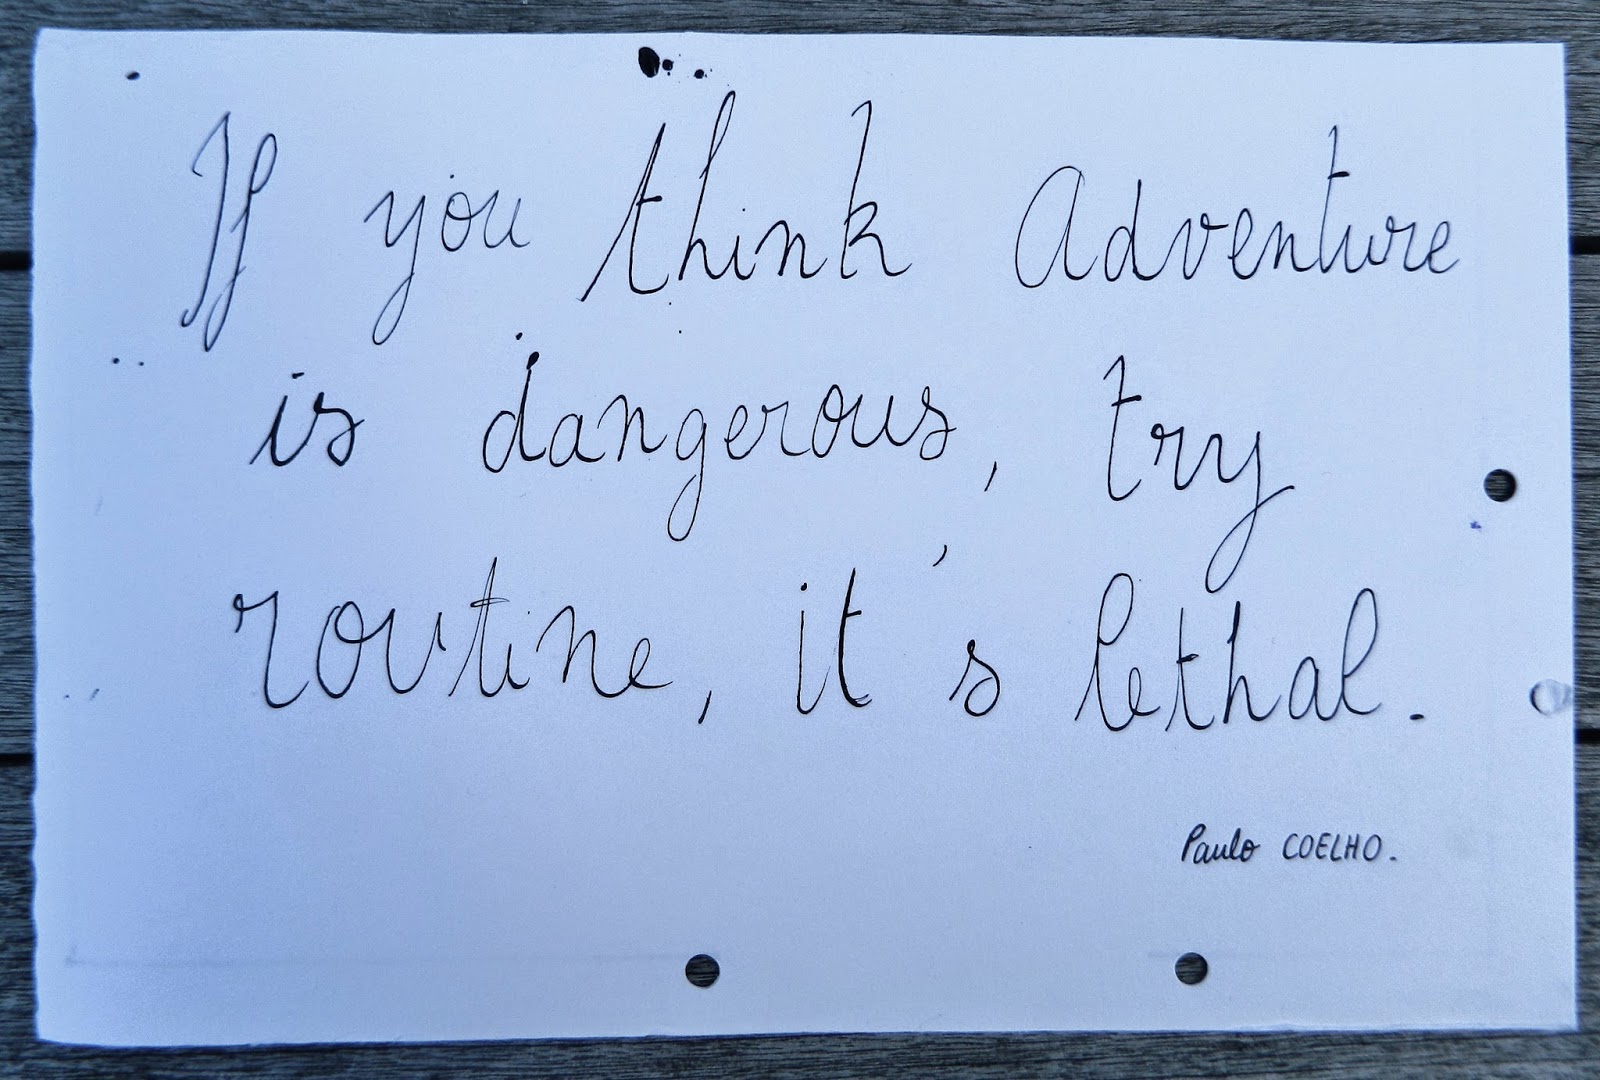 If you think Adventure
is dangerous, try
routine, it's lethal.
Paulo COELHO.